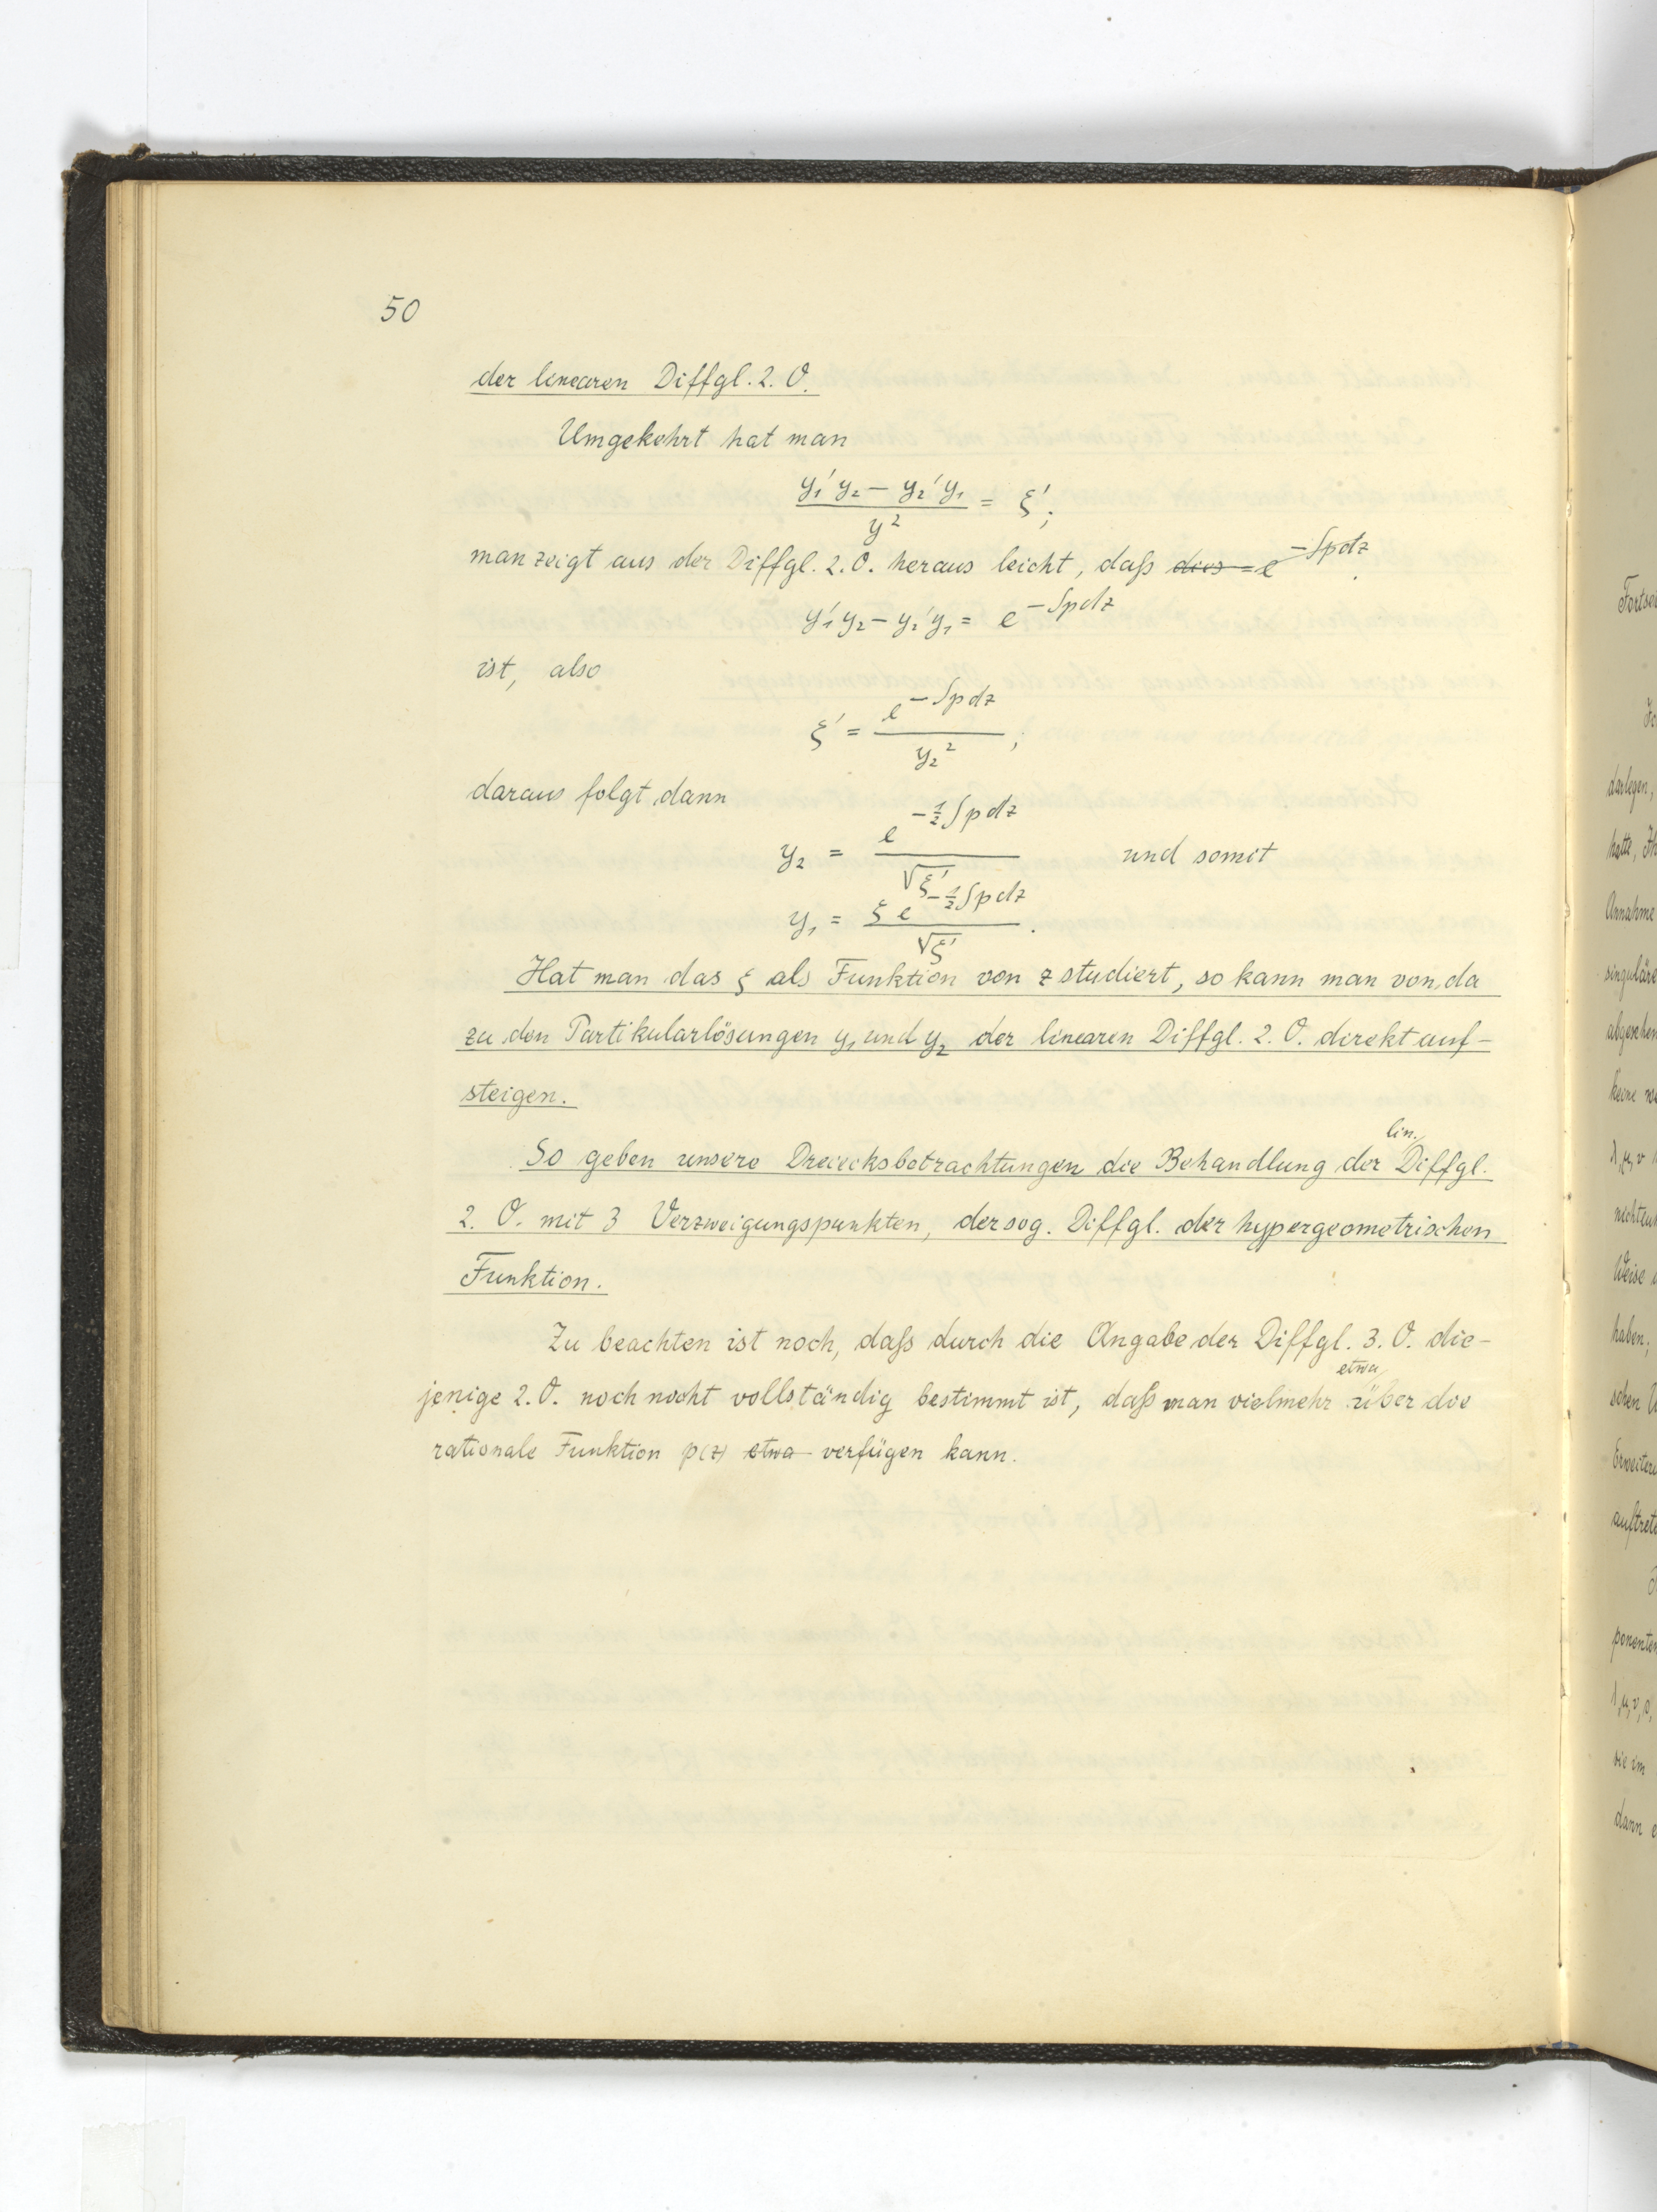 50
der linearen Diffgl. 2. O.
Umgekehrt hat man
(y₁′ y₂ − y₂′ y₁) / y² = ξ′;
man zeigt aus der Diffgl. 2. O. heraus leicht, daß dies = e^(−∫pdz).
y₁′ y₂ − y₂′ y₁ = e^(−∫pdz)
ist, also
ξ′ = e^(−∫pdz) / y₂²;
daraus folgt dann
y₂ = e^(−½∫pdz) / √ξ′ und somit
y₁ = ξ e^(−½∫pdz) / √ξ′.
Hat man das ξ als Funktion von z studiert, so kann man von da
zu den Partikularlösungen y₁ und y₂ der linearen Diffgl. 2. O. direkt auf-
steigen.
lin.
So geben unsere Dreiecksbetrachtungen die Behandlung der Diffgl.
2. O. mit 3 Verzweigungspunkten, der sog. Diffgl. der hypergeometrischen
Funktion.
Zu beachten ist noch, daß durch die Angabe der Diffgl. 3. O. die-
etwa
jenige 2. O. noch nicht vollständig bestimmt ist, daß man vielmehr über die
rationale Funktion p(z) etwa verfügen kann.
darlegen,
Annahme
singuläre
abgesehen
keine
Weise
haben;
schen
dann